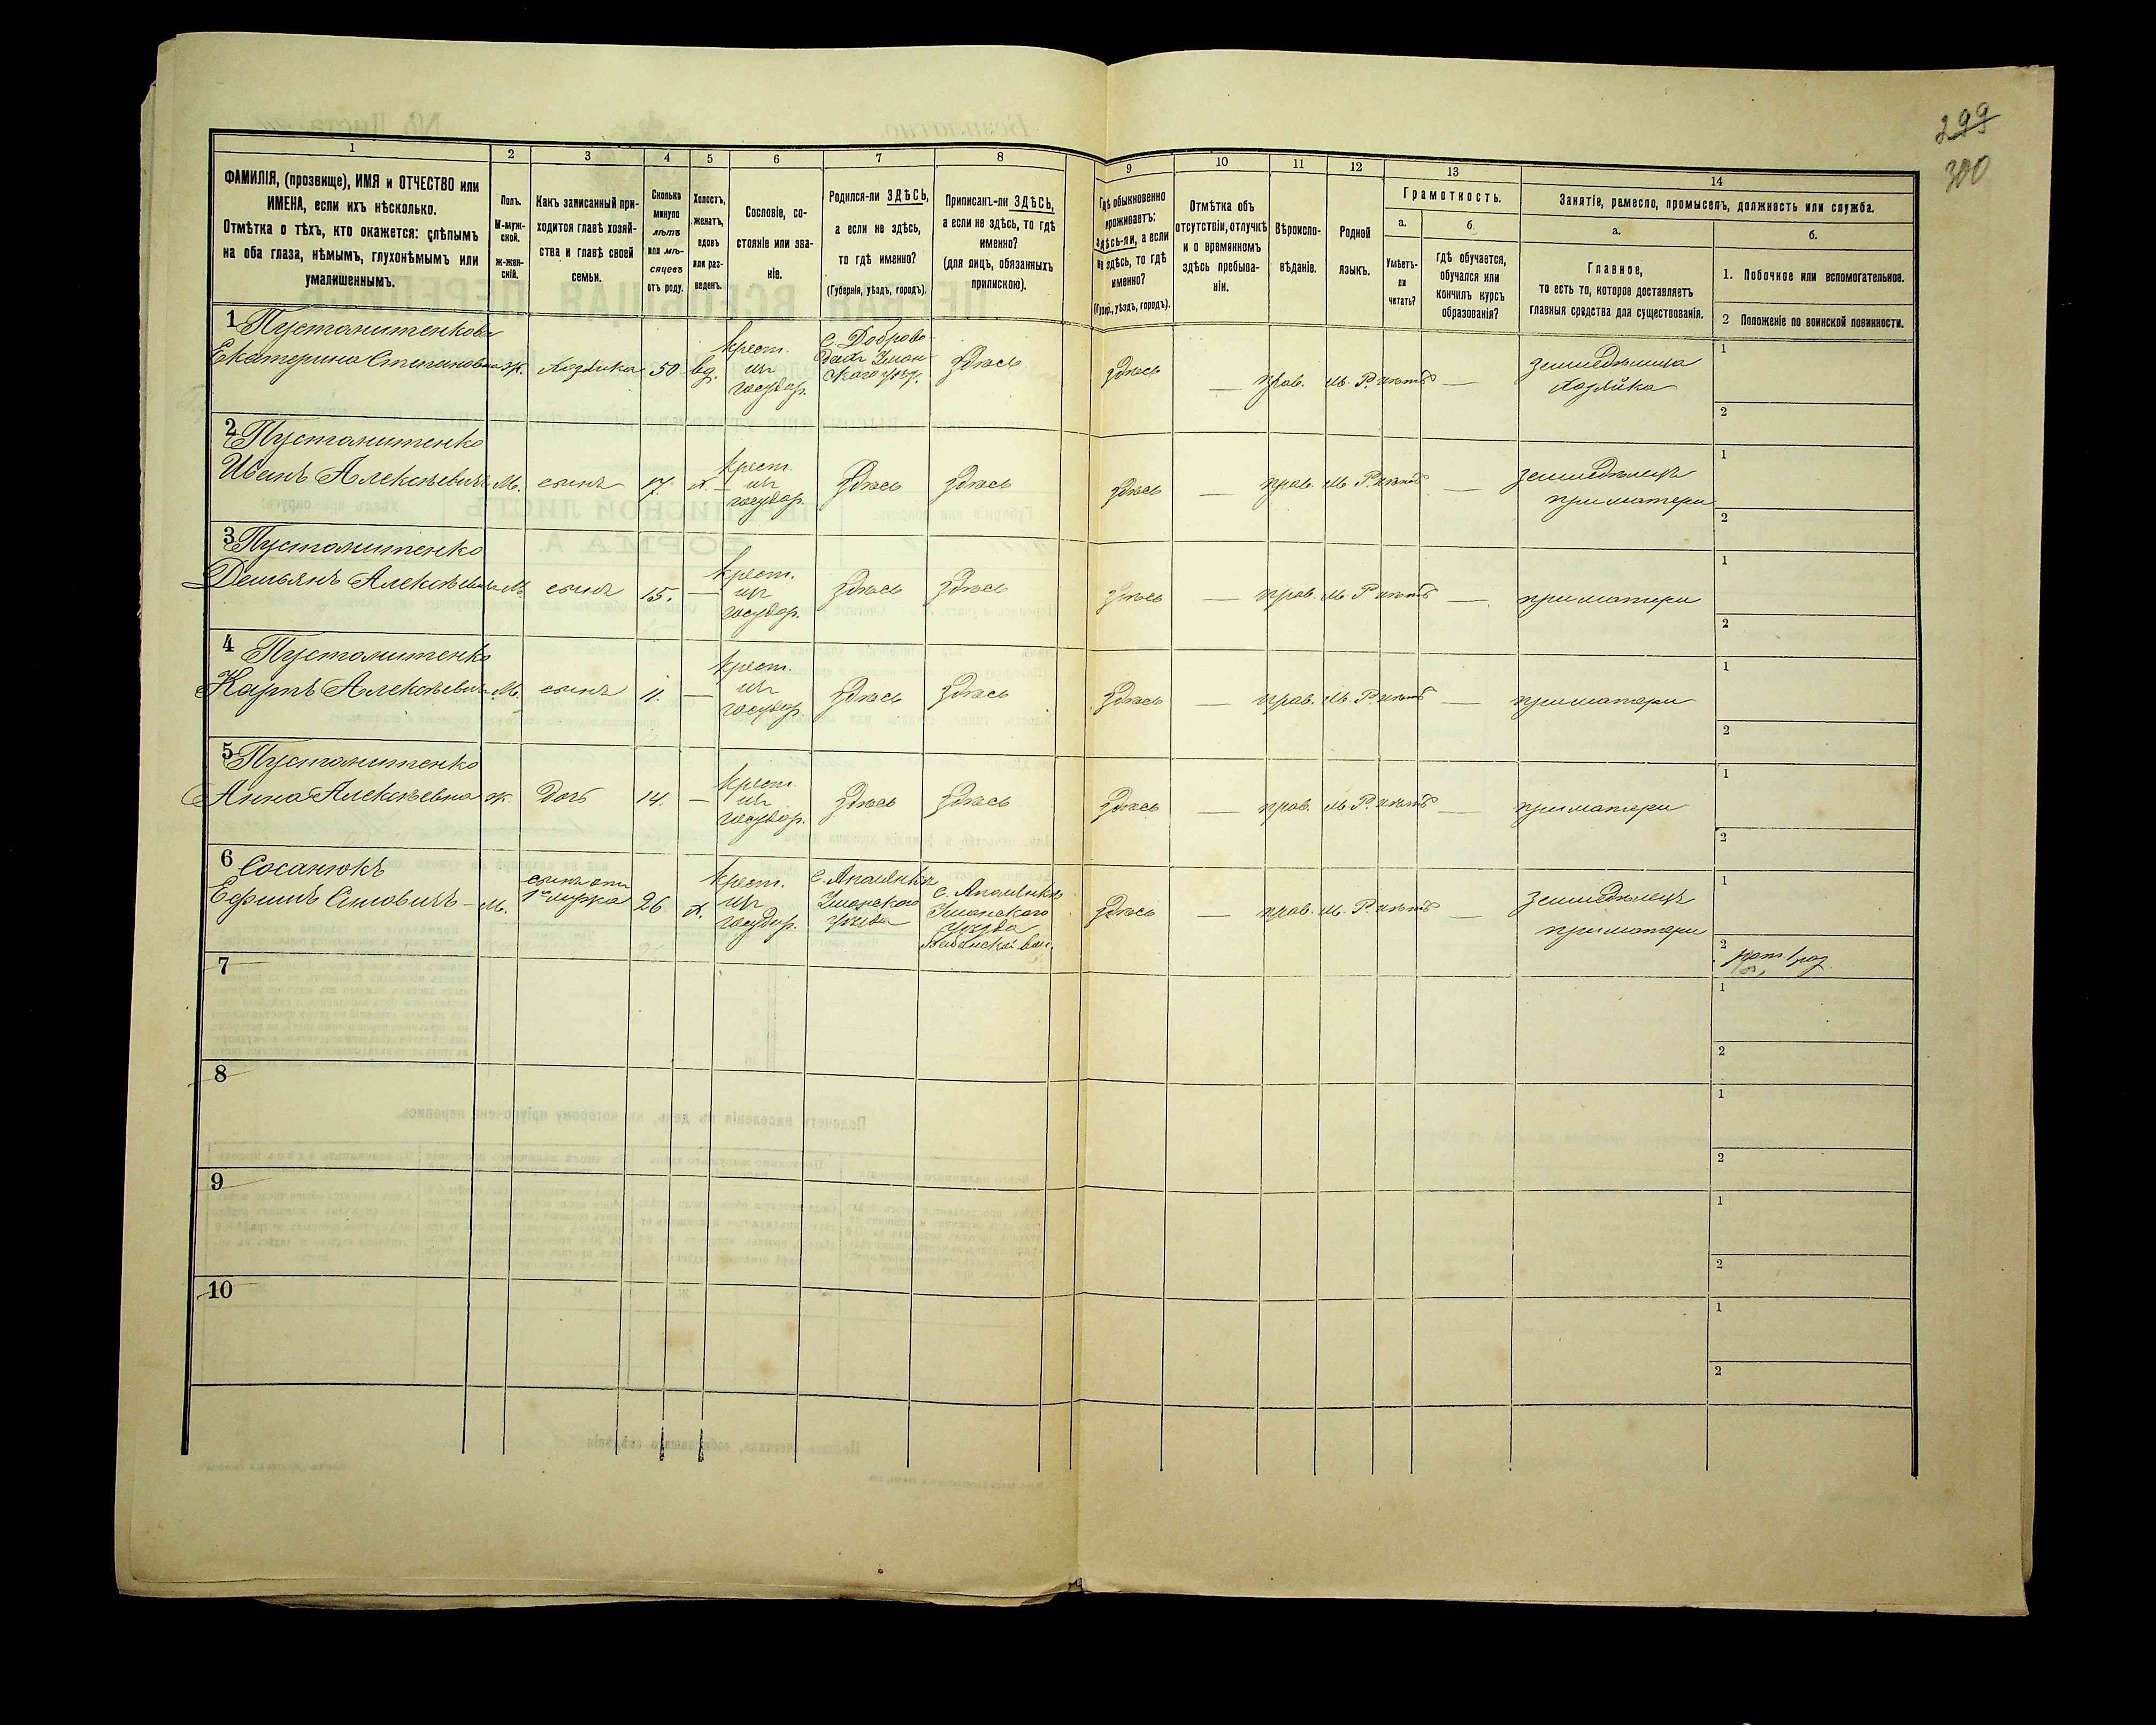 299
300
1
2
3
4
5
6
7
8
9
10
11
12
13
14
ФАМИЛІЯ, (прозвище), ИМЯ и ОТЧЕСТВО или
ИМЕНА, если ихъ нѣсколько.
Отмѣтка о тѣхъ, кто окажется: слѣпымъ
на оба глаза, нѣмымъ, глухонѣмымъ или
умалишеннымъ.
Полъ.
М-муж-
ской.
ж-жен-
скій.
Какъ записанный при-
ходится главѣ хозяй-
ства и главѣ своей
семьи.
Сколько
минуло
лѣтъ
или мѣ-
сяцевъ
отъ роду.
Холостъ,
женатъ,
вдовъ
или раз-
веденъ.
Сословіе, со-
стояніе или зва-
ніе.
Родился-ли ЗДѢСЬ,
а если не здѣсь,
то гдѣ именно?
(Губернія, уѣздъ, городъ).
Приписанъ-ли ЗДѢСЬ,
а если не здѣсь, то гдѣ
именно?
(для лицъ, обязанныхъ
припискою).
Гдѣ обыкновенно
проживаетъ:
здѣсь-ли, а если
не здѣсь, то гдѣ
именно?
(Губер., уѣздъ, городъ).
Отмѣтка объ
отсутствіи, отлучкѣ
и о временномъ
здѣсь пребыва-
ніи.
Вѣроиспо-
вѣданіе.
Родной
языкъ.
Грамотность.
а.
Умѣетъ-
ли
читать?
б.
гдѣ обучается,
обучался или
кончилъ курсъ
образованія?
Занятіе, ремесло, промыселъ, должность или служба.
а.
Главное,
то есть то, которое доставляетъ
главныя средства для существованія.
б.
1. Побочное или вспомогательное.
2 Положеніе по воинской повинности.
1 Пустомитенкова
Екатерина Степановна
ж.
хозяйка
50
вд.
крест.
из
государ.
с. Доброво-
дахъ Уман-
скаго уѣзд.
здѣсь
здѣсь
—
прав.
М. Р.
нѣтъ
—
земледѣлица
хозяйка
1
2
2 Пустомитенко
Иванъ Алексѣевичъ
М.
сынъ
17.
х.
крест.
из
государ.
здѣсь
здѣсь
здѣсь
—
прав.
М. Р.
нѣтъ
—
земледѣлецъ
при матери
1
2
3 Пустомитенко
Демьянъ Алексѣевичъ
М.
сынъ
15.
—
крест.
из
государ.
здѣсь
здѣсь
здѣсь
—
прав.
М. Р.
нѣтъ
—
при матери
1
2
4 Пустомитенко
Карпъ Алексѣевичъ
М.
сынъ
11.
—
крест.
из
государ.
здѣсь
здѣсь
здѣсь
—
прав.
М. Р.
нѣтъ
—
при матери
1
2
5 Пустомитенко
Анна Алексѣевна
ж.
дочь
14.
—
крест.
из
государ.
здѣсь
здѣсь
здѣсь
—
прав.
М. Р.
нѣтъ
—
при матери
1
2
6 Сосанюкъ
Ефимъ
М.
сынъ отъ
1го мужа
26
х.
крест.
из
государ.
с.
Уманского
уѣзда
с.
Уманскаго
уѣзда
здѣсь
—
прав.
М. Р.
нѣтъ
—
земледѣлецъ
при матери
1
2 рат. 1 раз.
7
1
2
8
1
2
9
1
2
10
1
2